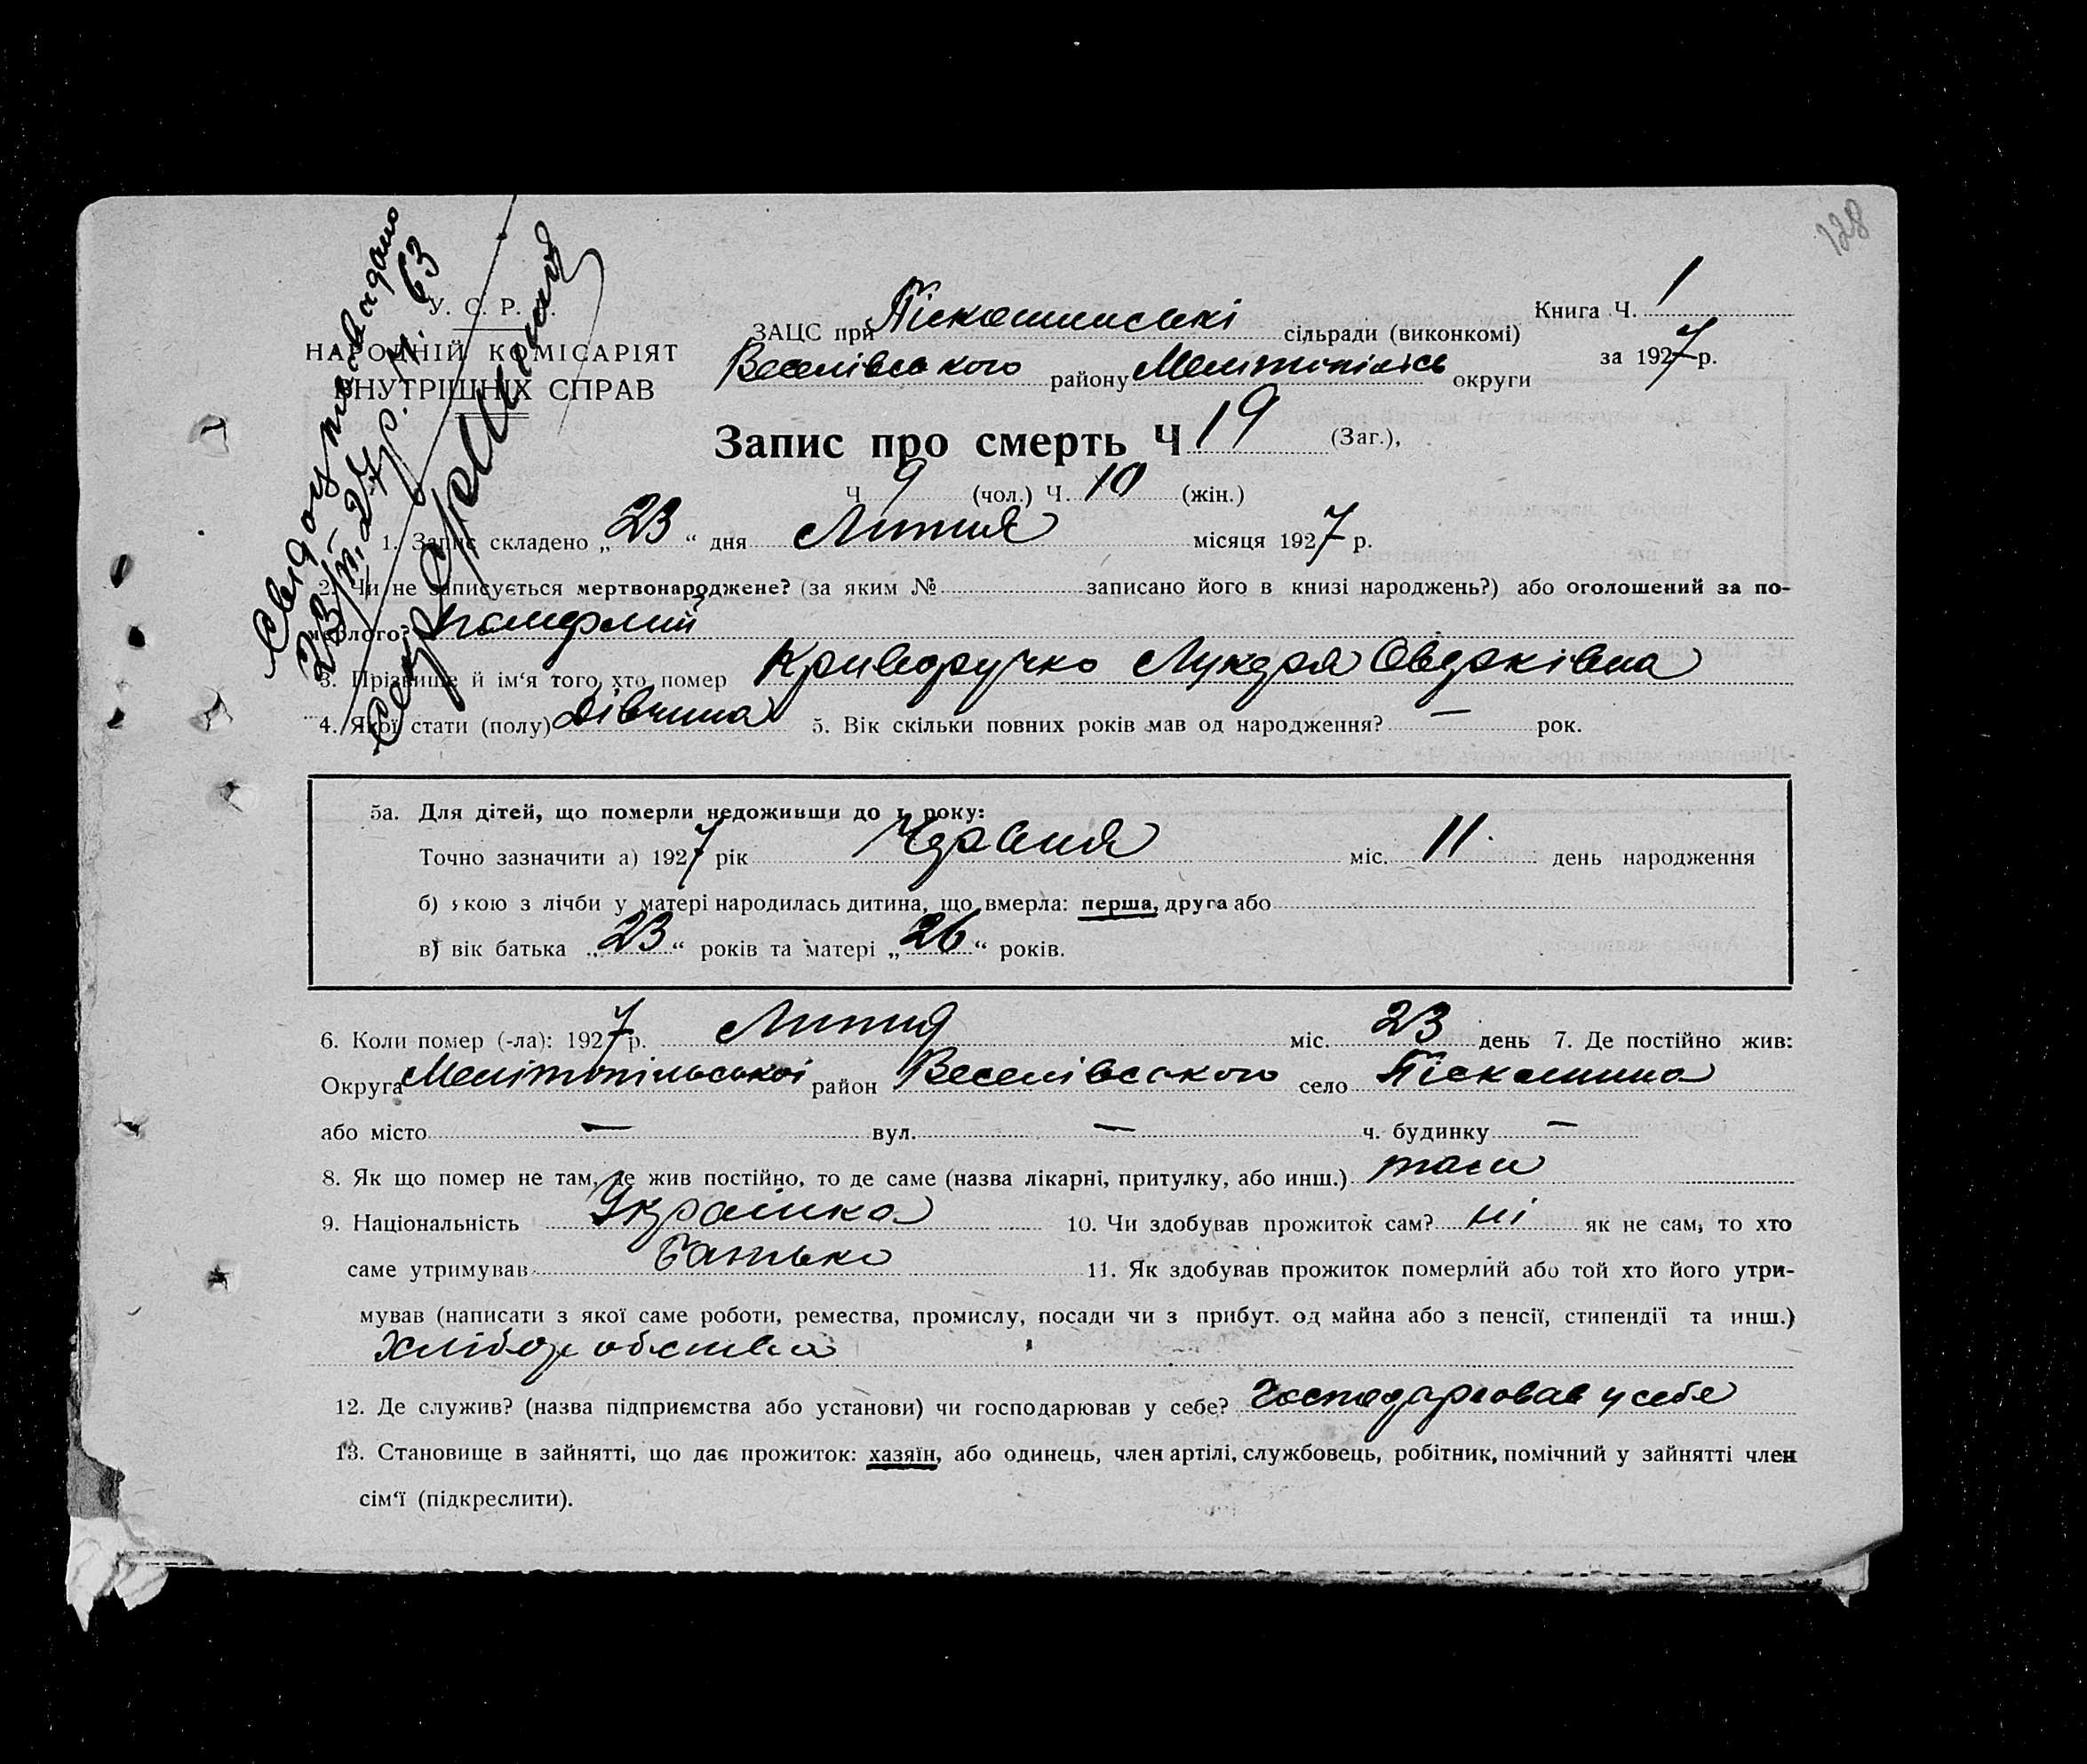 128
Свідоцтво видано
23/VII-27р. Ч. 63
У. С. Р. Р.
НАРОДНІЙ КОМІСАРІЯТ
ВНУТРІШНІХ СПРАВ
Книга Ч. 1
за 1927 р.
ЗАЦС при Піскошинські сільради (виконкомі)
Веселівського району Мелітопільсь округи
Запис про смерть Ч 19 (Заг.),
Ч 9 (чол.) Ч. 10 (жін.)
1. Запис складено „23“ дня Липня місяця 1927 р.
2. Чи не записується мертвонароджене? (за яким № записано його в книзі народжень?) або оголошений за по-
мерлого? померлий
3. Прізвище й ім‘я того, хто помер Криворучко Лукеря Овдоківна
4. Якої стати (полу) Дівчина 5. Вік скільки повних років мав од народження? — рок.
5а. Для дітей, що померли недоживши до 1 року:
Точно зазначити а) 1927 рік Червня міс. 11 день народження
б) якою з лічби у матері народилась дитина, що вмерла: перша, друга або
в) вік батька „23“ років та матері „26“ років.
6. Коли помер (-ла): 1927 р. Липня міс. 23 день 7. Де постійно жив:
Округа Мелітопільської район Веселівського село Піскошина
або місто — вул. — ч. будинку —
8. Як що помер не там, де жив постійно, то де саме (назва лікарні, притулку, або инш.) там
9. Національність Українка 10. Чи здобував прожиток сам? ні як не сам, то хто
саме утримував Батько 11. Як здобував прожиток померлий або той хто його утри-
мував (написати з якої саме роботи, ремества, промислу, посади чи з прибут. од майна або з пенсії, стипендії та инш.)
Хліборобства
12. Де служив? (назва підприємства або установи) чи господарював у себе? Господарював у себе
13. Становище в зайнятті, що дає прожиток: хазяїн, або одинець, член артілі, службовець, робітник, помічний у зайнятті член
сім‘ї (підкреслити).